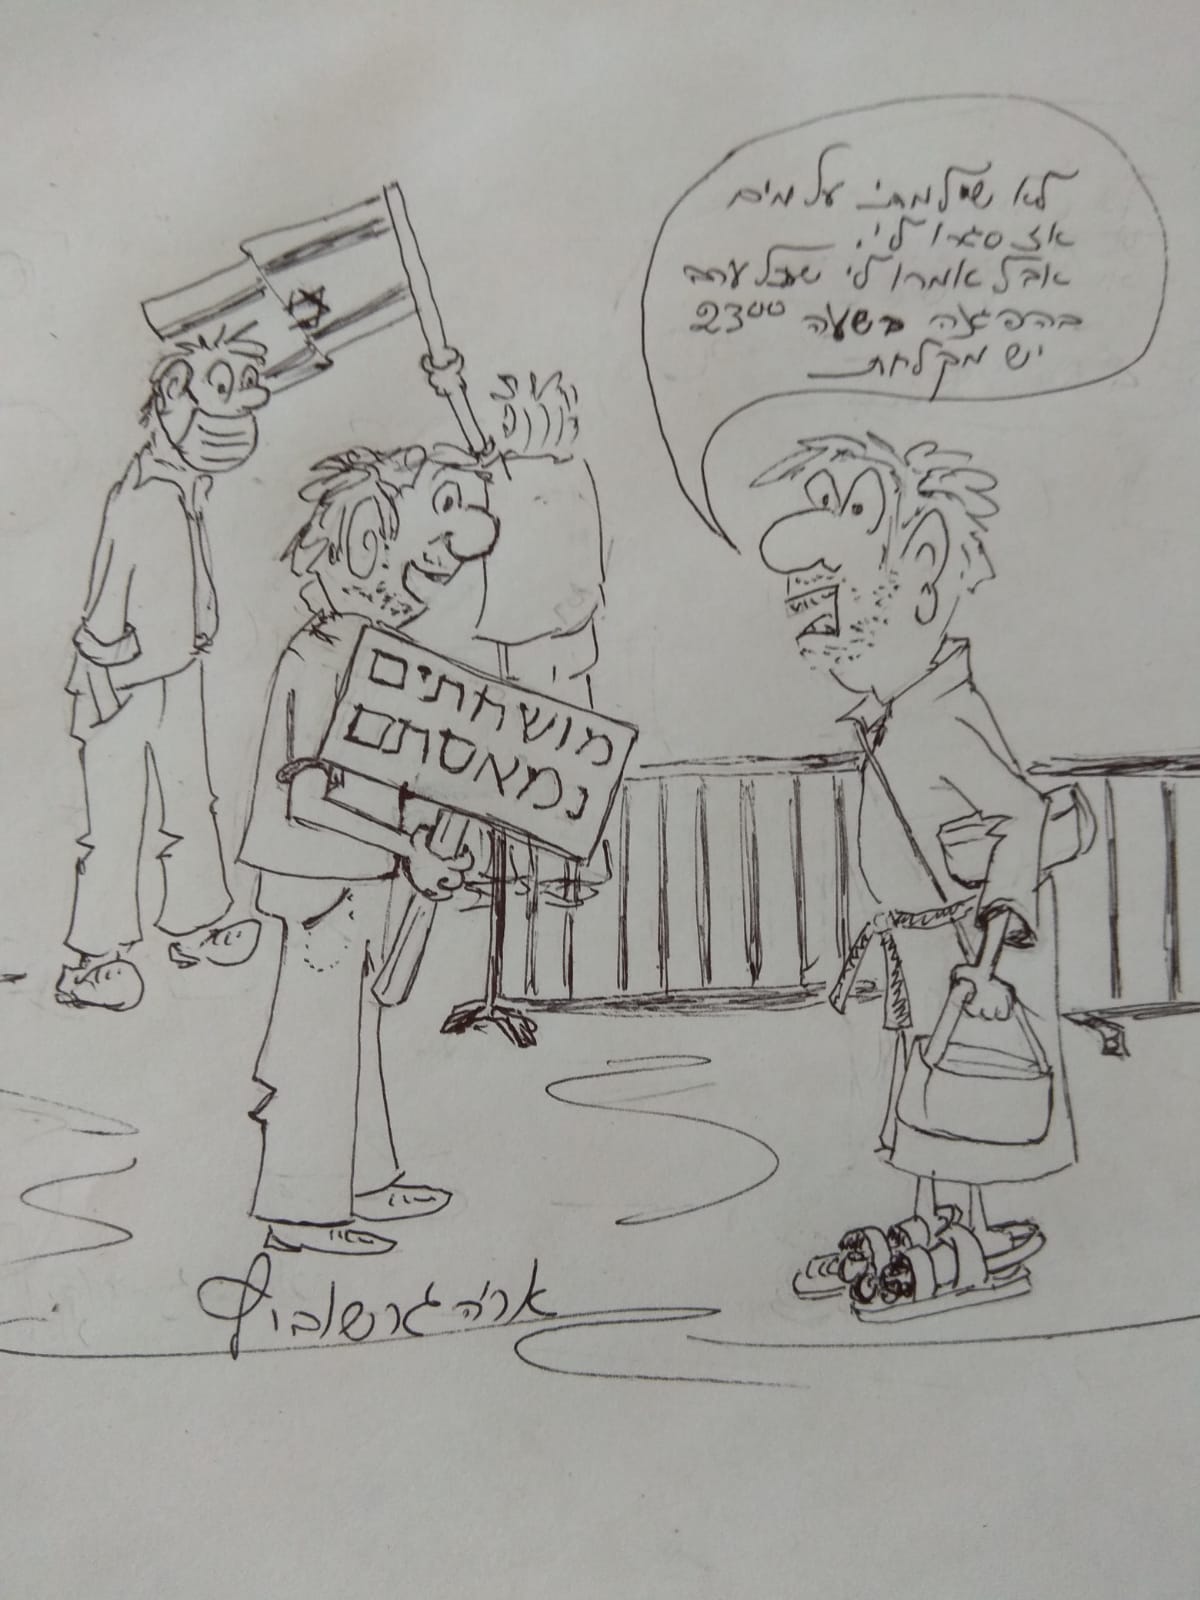 לא שילמתי על מים
אז סגרו לי.
אבל אמרו לי שכל ערב
בהפגנה בשעה 23⁰⁰
יש מקלחת
מושחתים
נמאסתם
אריה גרשוביץ